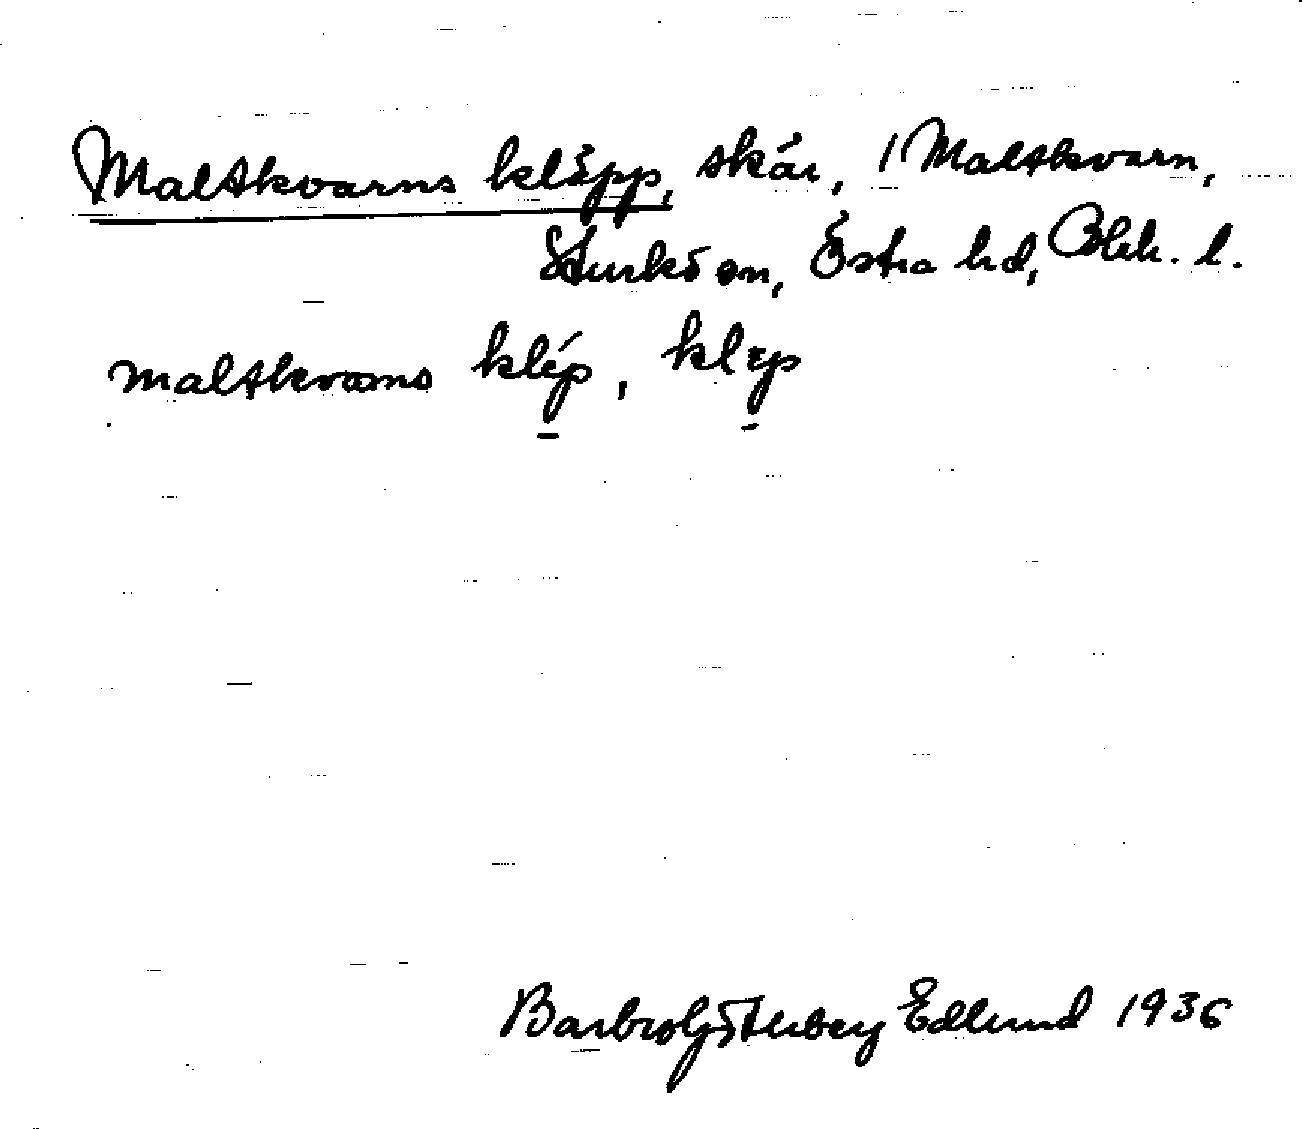 Maltkvarns kläpp, skär, / Maltkvarn,
Sturköen, Östra hd, Blek. l.
maltkvarns klép, klep
Edlund 1936